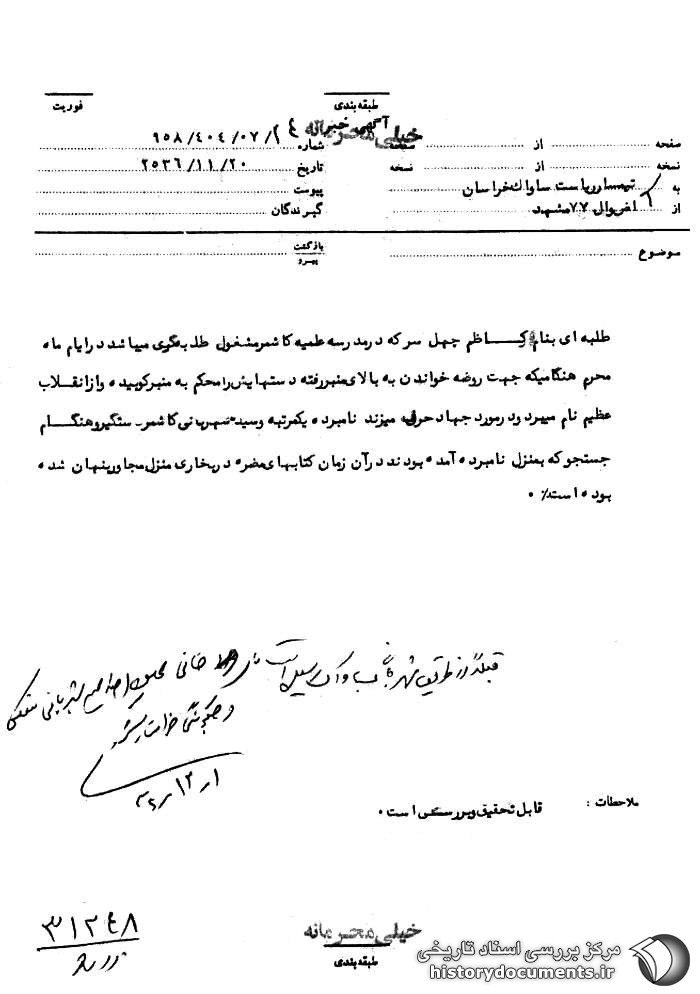 طبقه‌بندی
فوریت
خیلی محرمانه
آگهی خبر
صفحه از صفحه
شماره ۹۵۸/٤۰٤/۰۷/
نسخه از نسخه
تاریخ ۲۵۳۶/۱۱/۲۰
به تیمسار ریاست ساواک خراسان
پیوست
از اخروال ۷۷ مشهد
گیرندگان
موضوع
بازگشت
پیرو
طلبه ای بنام کاظم چهل سر که در مدرسه علمیه کاشمر مشغول طلبه گوی میباشد در ایام ماه
محرم هنگامیکه جهت روضه خواندن به بالای منبر رفته دستهایش را محکم به منبر کوبیده و از انقلاب
عظیم نام میبرد و در مورد جهاد حرف میزند نامبرده یکمرتبه وسیله شهربانی کاشمر ـ ستگیر و هنگام
جستجو که بمنزل نامبرده آمده بودند در آن زمان کتابهای مضره در بخاری منزل مجاور پنهان شده
بوده است٪ ۰
ملاحظات : قابل تحقیق و بررسی است ۰
۳۱۲٤۸
خیلی محرمانه
طبقه‌بندی
مرکز بررسی اسناد تاریخی
historydocuments.ir